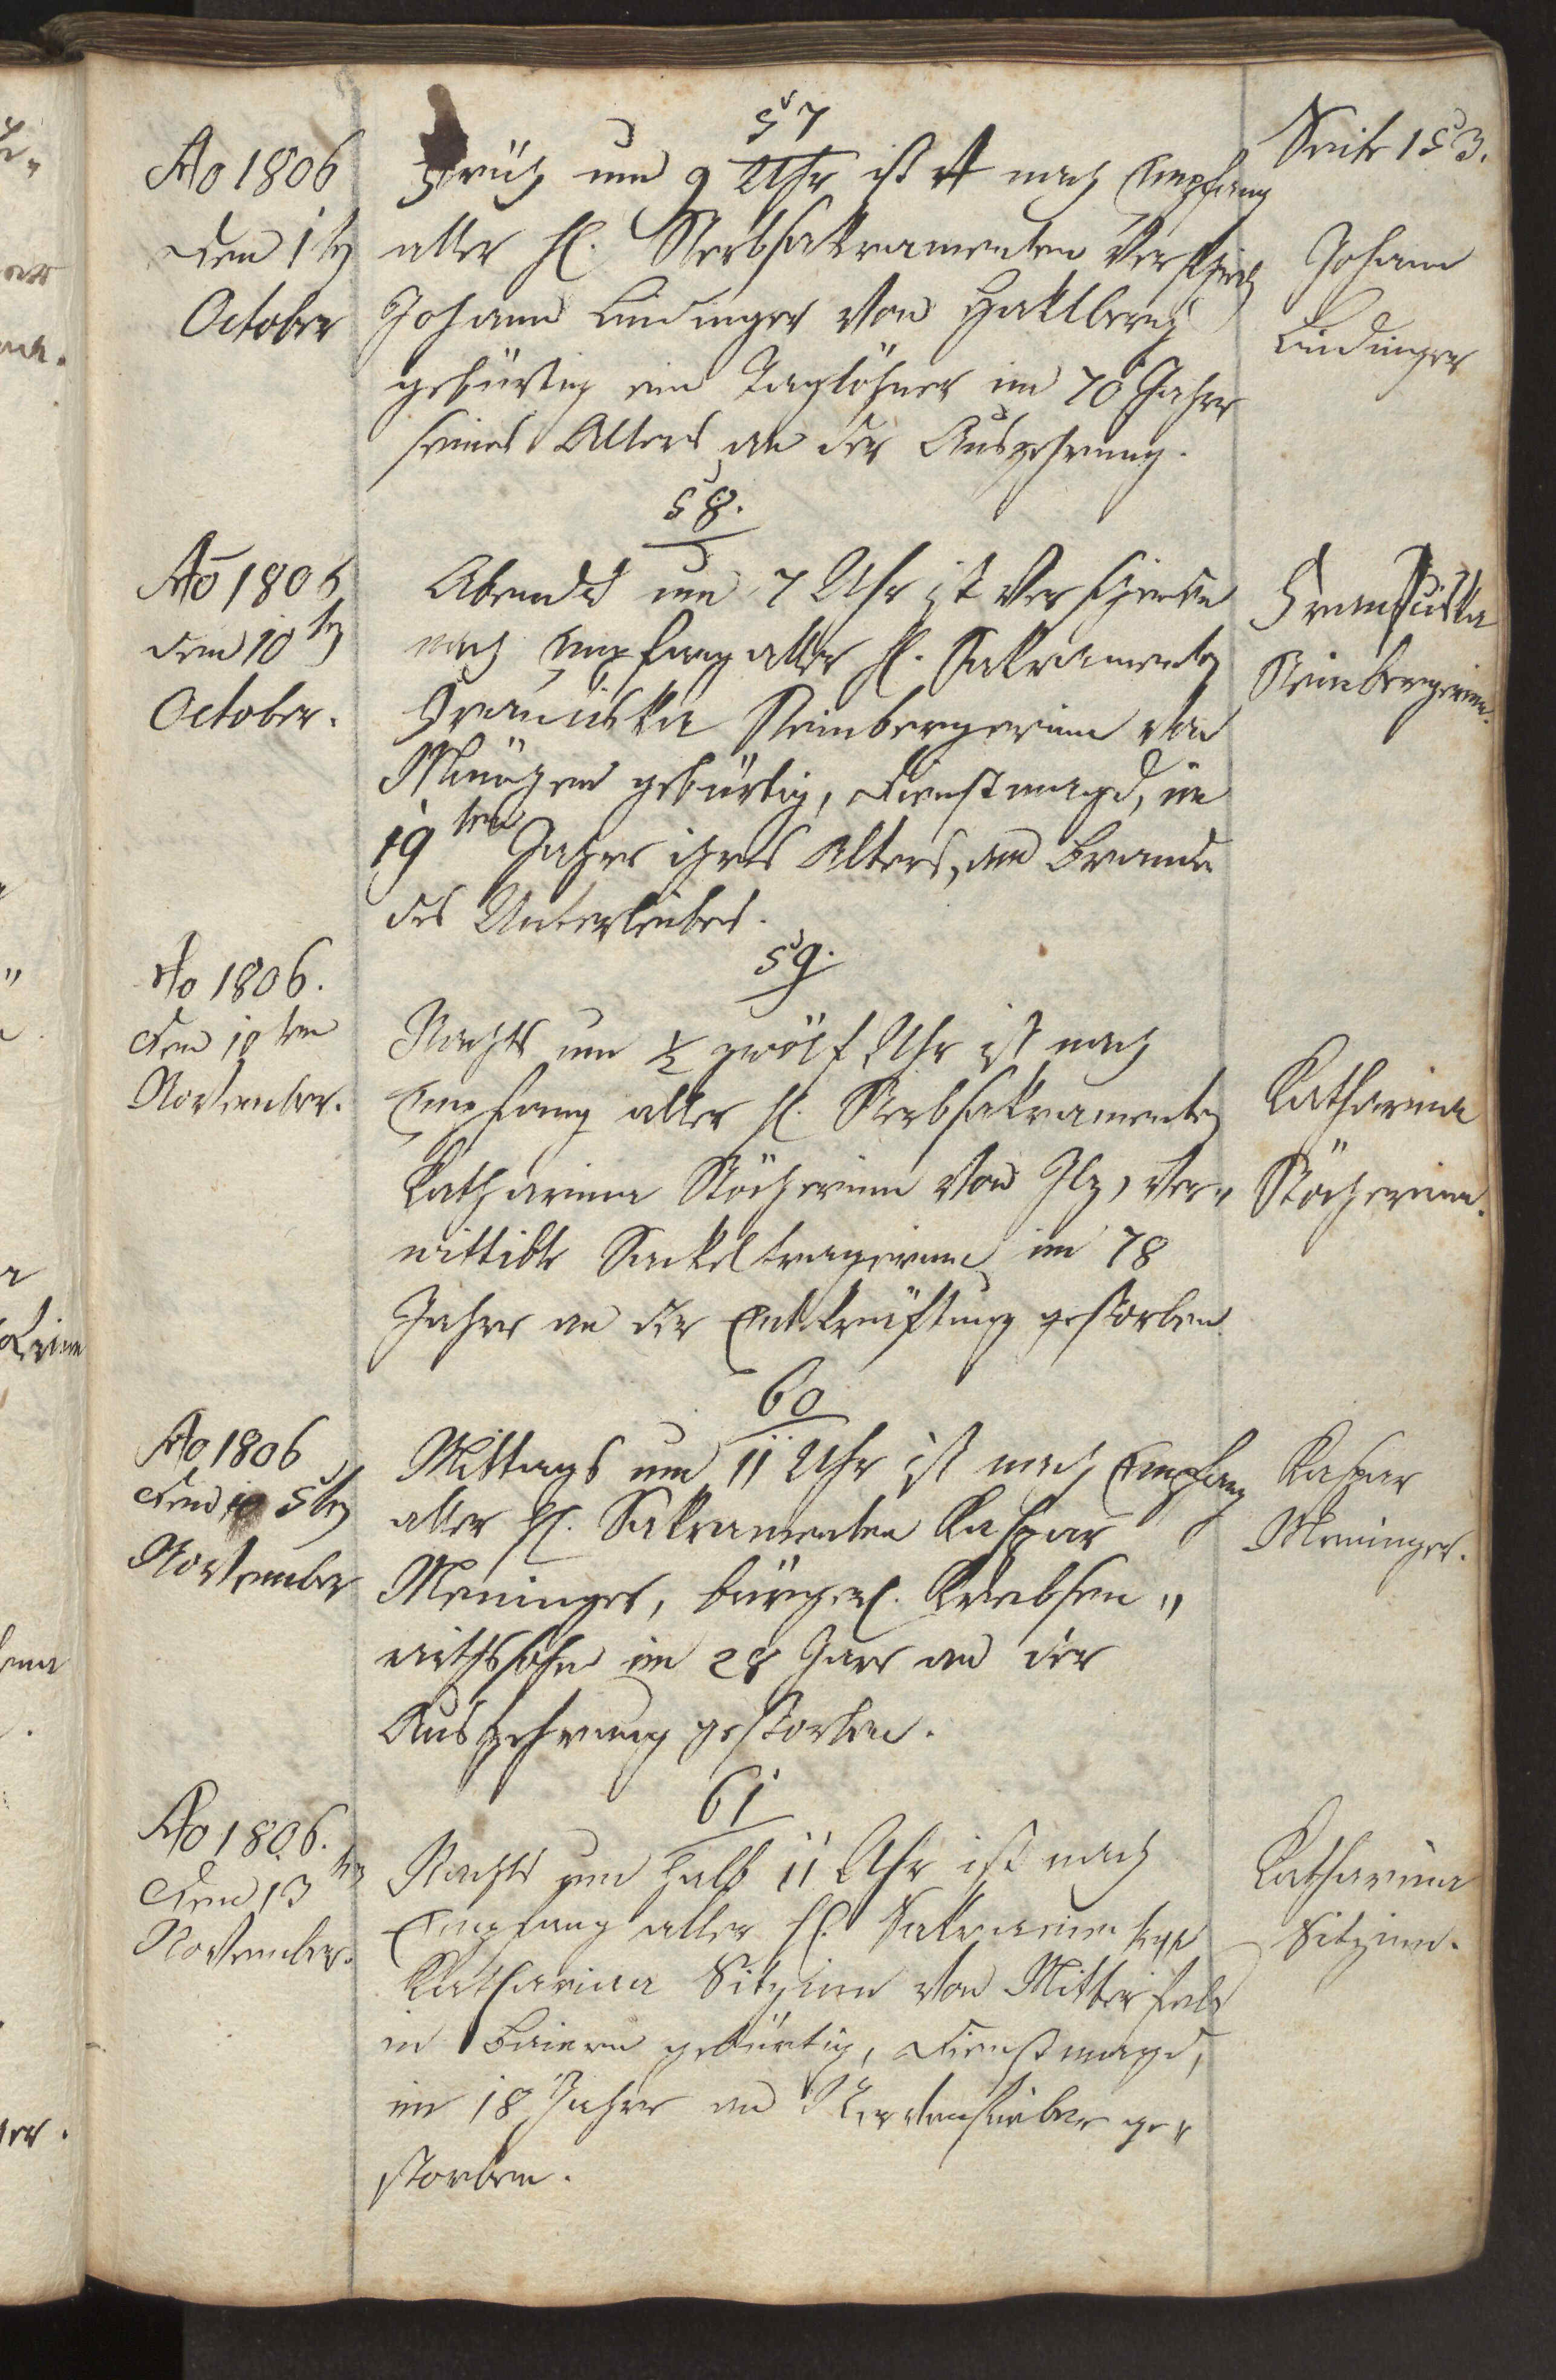 Seite 153.
57
Ao 1806
den 1ten
October
Früh um 9 Uhr ist nach Empfang
aller hl. Sterbsakramenten verschied
Johann Lindinger von Haklberg
gebürtig ein Taglöhner im 70 Jahre
seines Alters an der Auszehrung.
Johann
Lindinger
58.
Ao 1806
den 10ten
October.
Abends um 7 Uhr ist verschieden
nach Empfang aller hl. Sakramenten
Franciska Steinbergerinn von
gebürtig, Dienstmagd, im
19ten Jahre ihres Alters, am Brande
des Unterleibes.
Franciska
Steinbergerinn.
59.
Ao 1806.
den 10ten
November.
Nachts um ½ zwölf Uhr ist nach
Empfang aller hl. Sterbsakramenten
Katharina Stöcherinn von Ilz, ver-
wittibte Sackeltragerinn im 78
Jahre an der Entkräftung gestorben
Katharina
Stöcherinn.
60
Ao 1806
den 5ten
November
Mittags um 11 Uhr ist nach Empfang
aller hl. Sakramenten Kaspar
Meninger, bürgerl. Krebsen-
wirthssohn im 28 Jare an der
Auszehrung gestorben.
Kaspar
Meninger.
61
Ao 1806.
den 13ten
November.
Nachts um halb 11 Uhr ist nach
Empfang aller hl. Sakramenten
Katharina Sitzinn von Mitterfels
in Baiern gebürtig, Dienstmagd,
im 18 Jahre am Nervenfieber ge-
storben.
Katharina
Sitzinn.